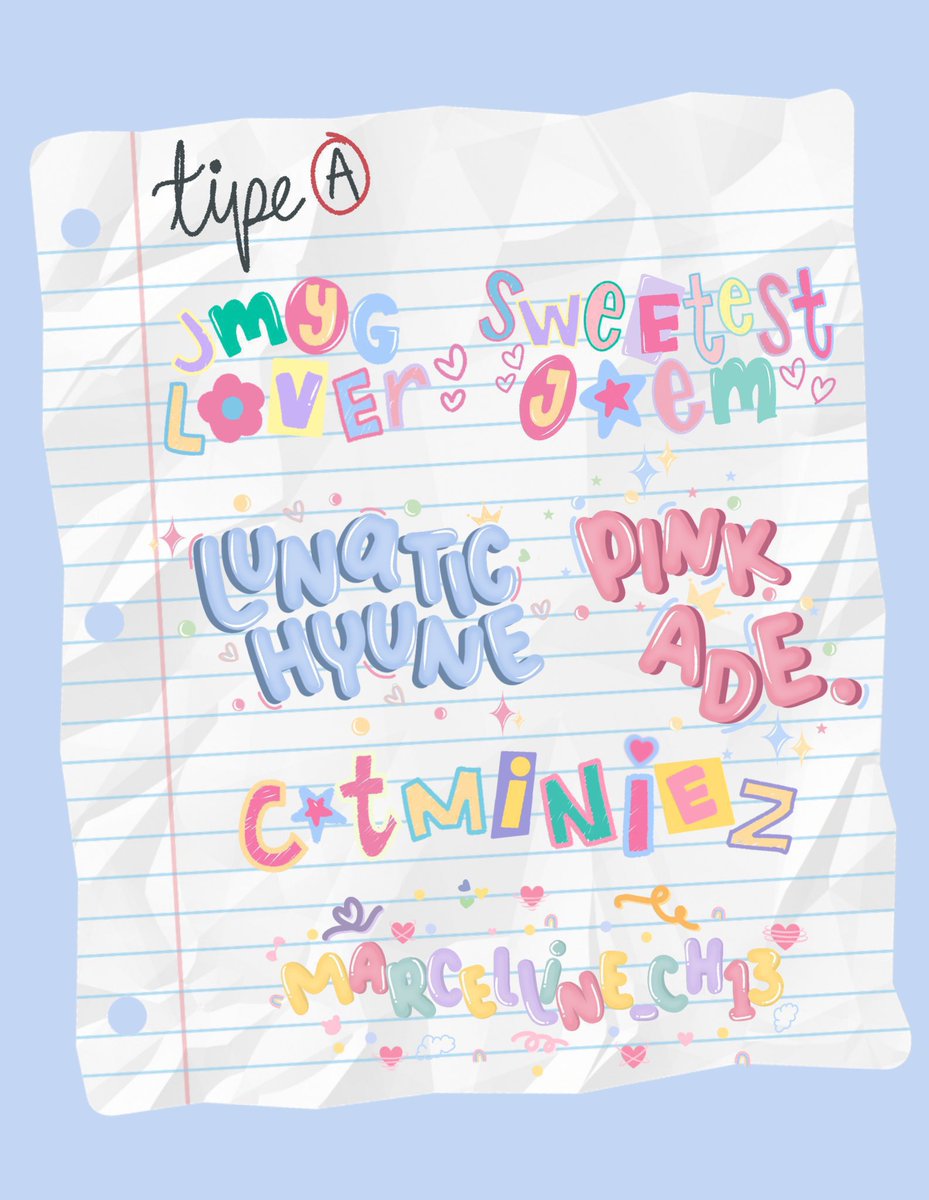 type A
JMYG
LOVEr
SweEtest
J★em
LUNaTIC
HYUUNE
PINK.
ADE.
C★tMiNiEZ
MARCElliNE_CH13